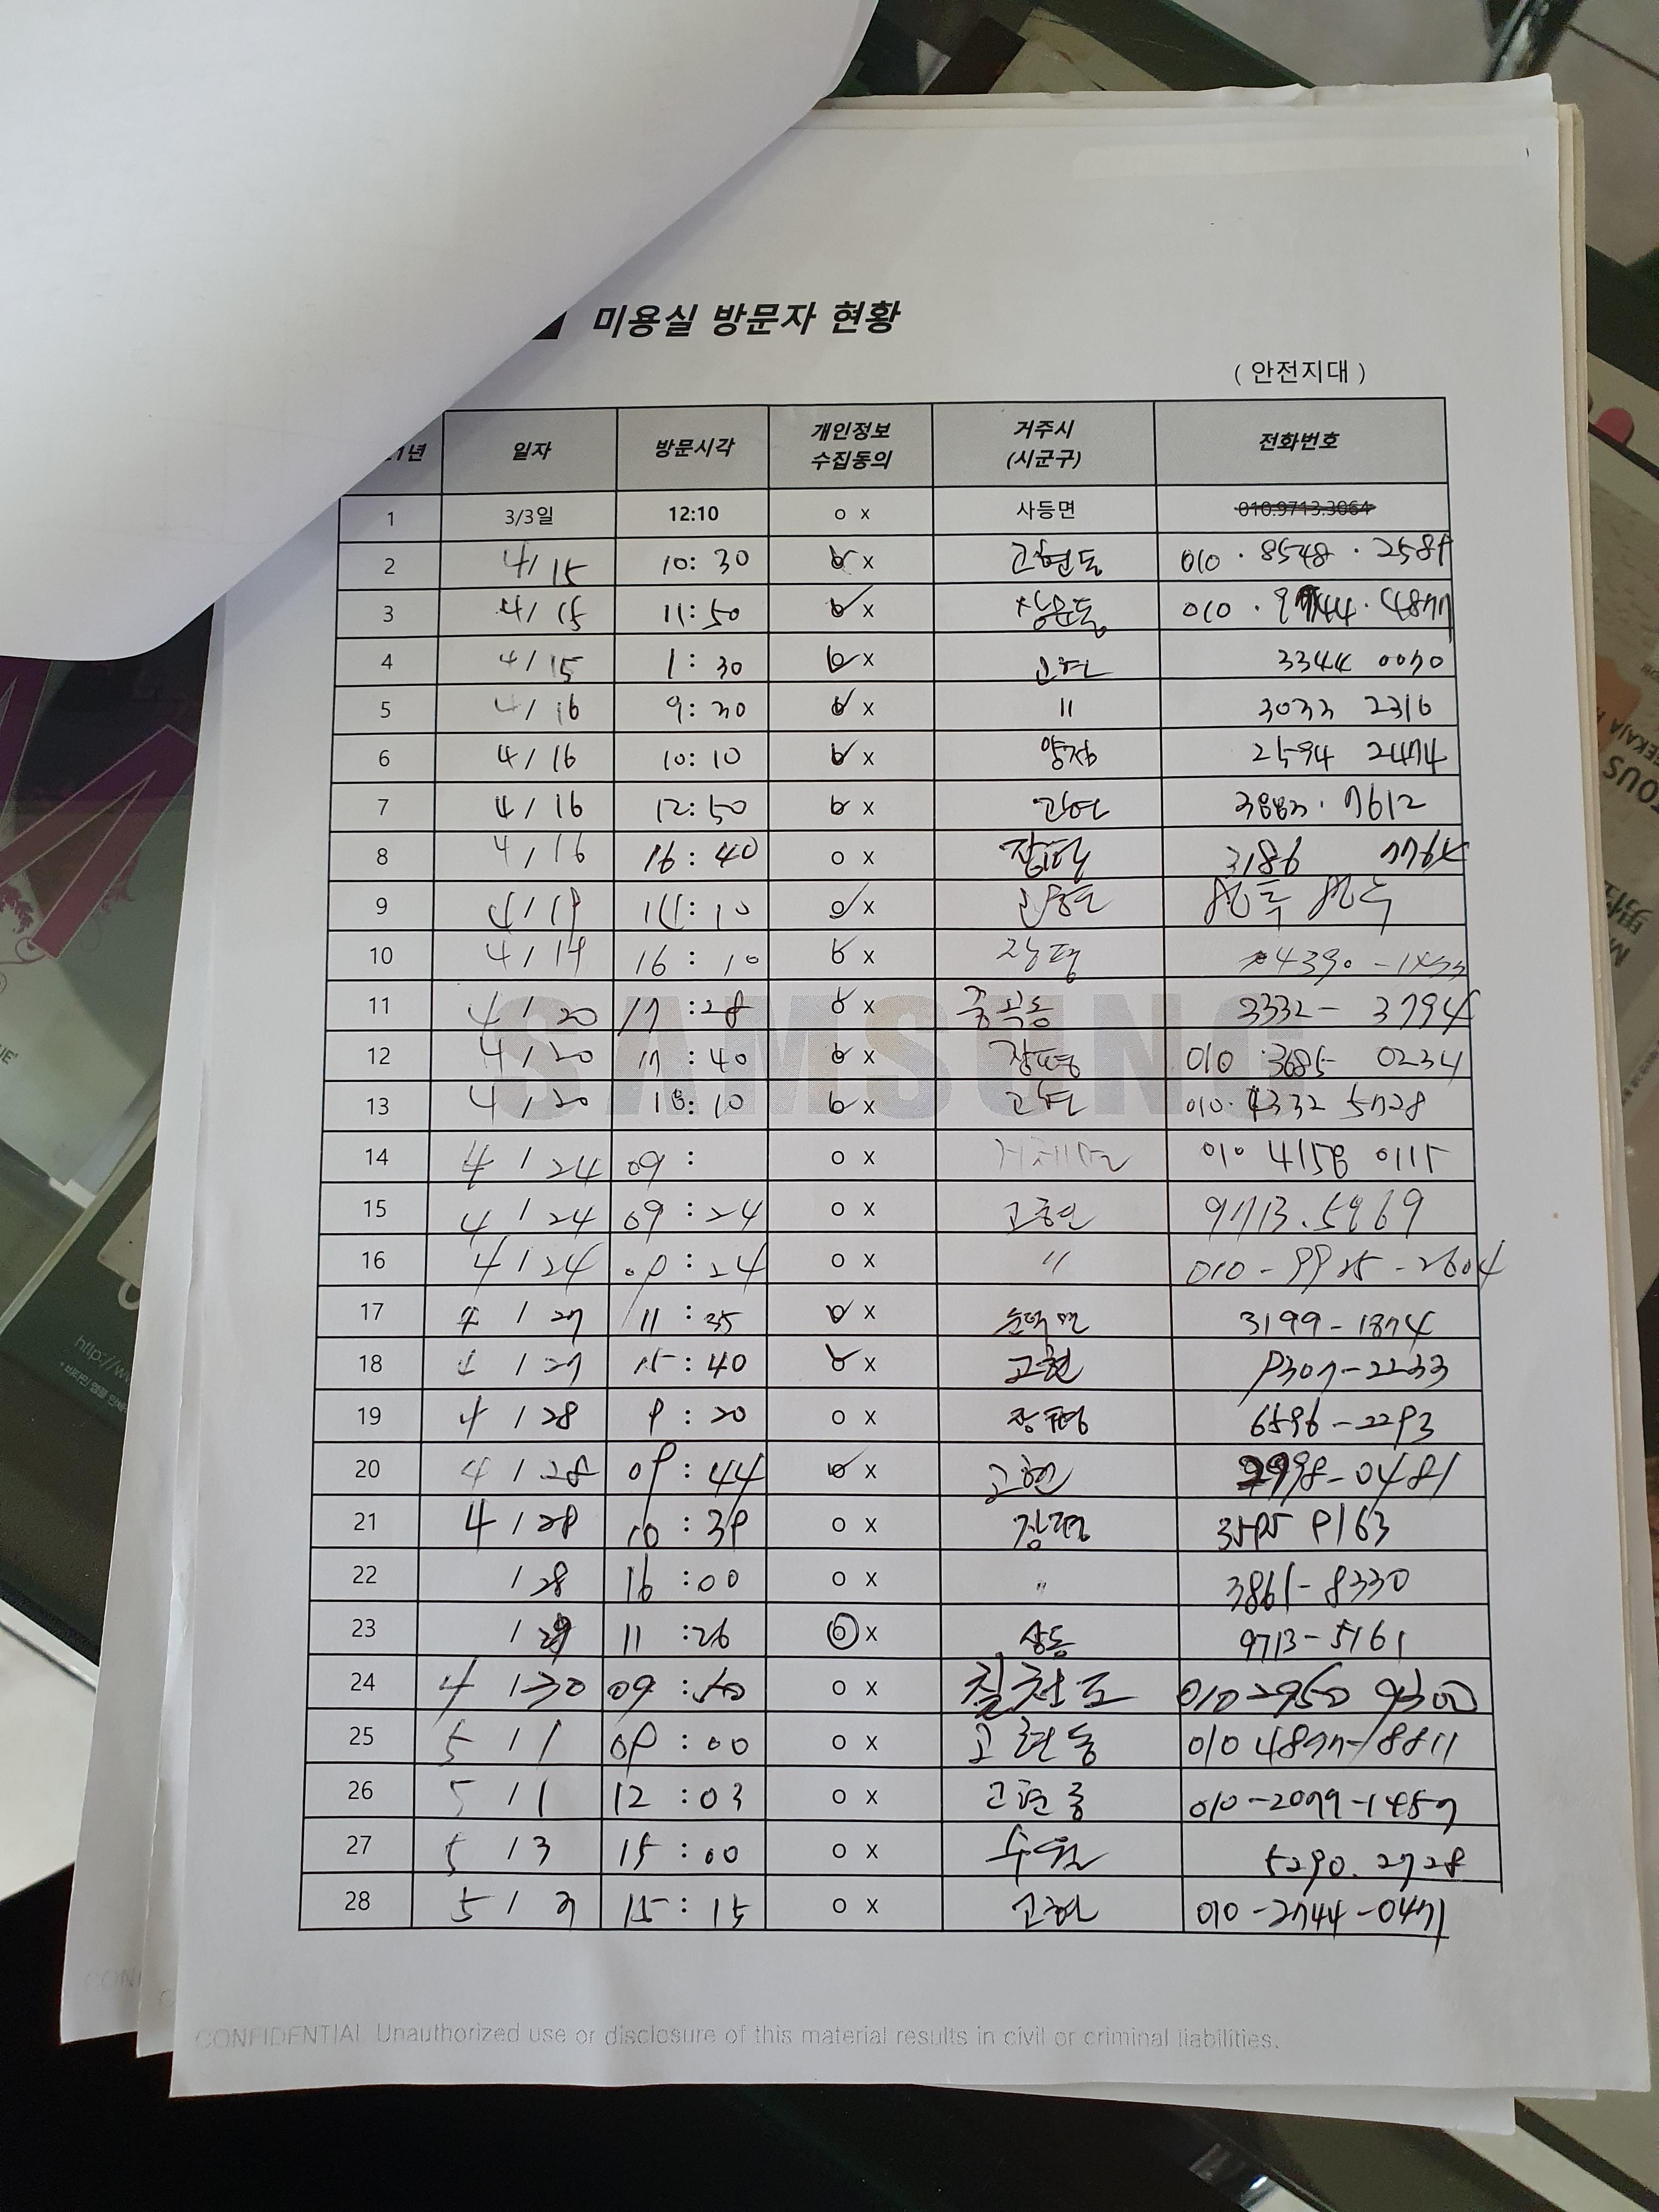 미용실 방문자 현황
( 안전지대 )
1년 일자 방문시각 개인정보 수집동의 거주시 (시군구) 전화번호
1 3/3일 12:10 o x 사등면 010.9713.3064
2 4/15 10:30 o x 고현동 010 . 8548 .
3 4/15 11:50 o x 상문동 010 .
4 4/15 1:30 o x 고현 3344 0070
5 4/16 9:30 o x 〃 3033 2316
6 4/16 10:10 o x 양정 2594 2474
7 4/16 12:50 o x 고현 3883. 7612
8 4/16 16:40 o x 장평 3186
9 4/19 o x
10 4/19 16:10 o x 장평 4390 -
11 4/20 17:28 o x 3332- 3794
12 4/20 17:40 o x 장평 010 3685 0234
13 4/20 18:10 o x 고현 010. 4332 5728
14 4/24 09: o x 거제면 010 4158 0115
15 4/24 09:24 o x 고현 9713.5969
16 4/24 09:24 o x 〃 010-9925-2604
17 4/27 11:35 o x 3199-1874
18 4/27 15:40 o x 고현 9307-2233
19 4/28 9:20 o x 장평 6596-2293
20 4/28 09:44 o x 고현 2998-0481
21 4/28 10:39 o x 장평 9163
22 /28 16:00 o x 〃 3861-8330
23 /29 11:26 o x 상동 9713-5161
24 4/30 09:50 o x 칠천도 010 2950 9300
25 5/1 09:00 o x 고현동 010 4877-8811
26 5/1 12:03 o x 고현동 010-2079-1457
27 5/3 15:00 o x 수월 5290.2728
28 5/3 15:15 o x 고현 010-2744-0471
SAMSUNG
CONFIDENTIAL Unauthorized use or disclosure of this material results in civil or criminal liabilities.